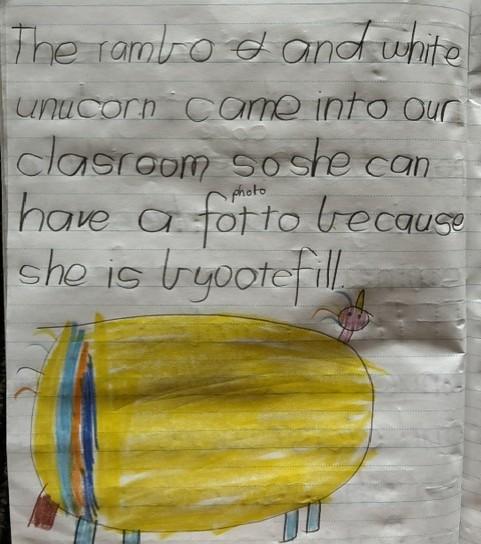 The rambo and white
unucorn came into our
clasroom so she can
photo
have a fotto because
she is byootefill.